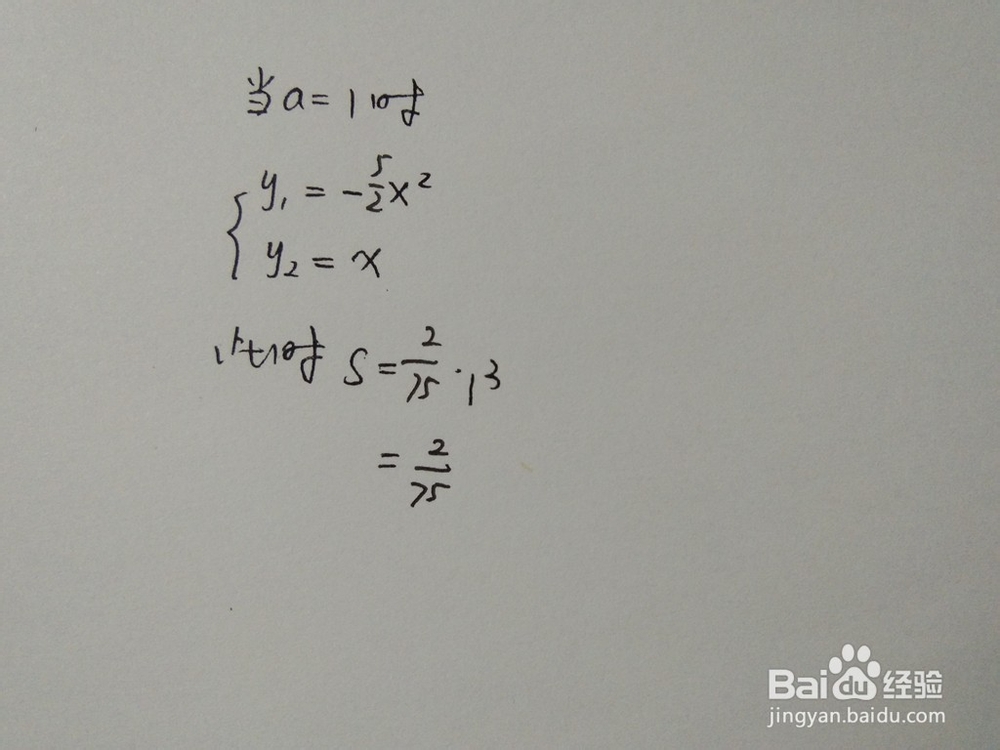 当a=1时
y₁=-5/2x²
y₂=x
此时 S=2/75·1³
=2/75
Baidu经验
jingyan.baidu.com